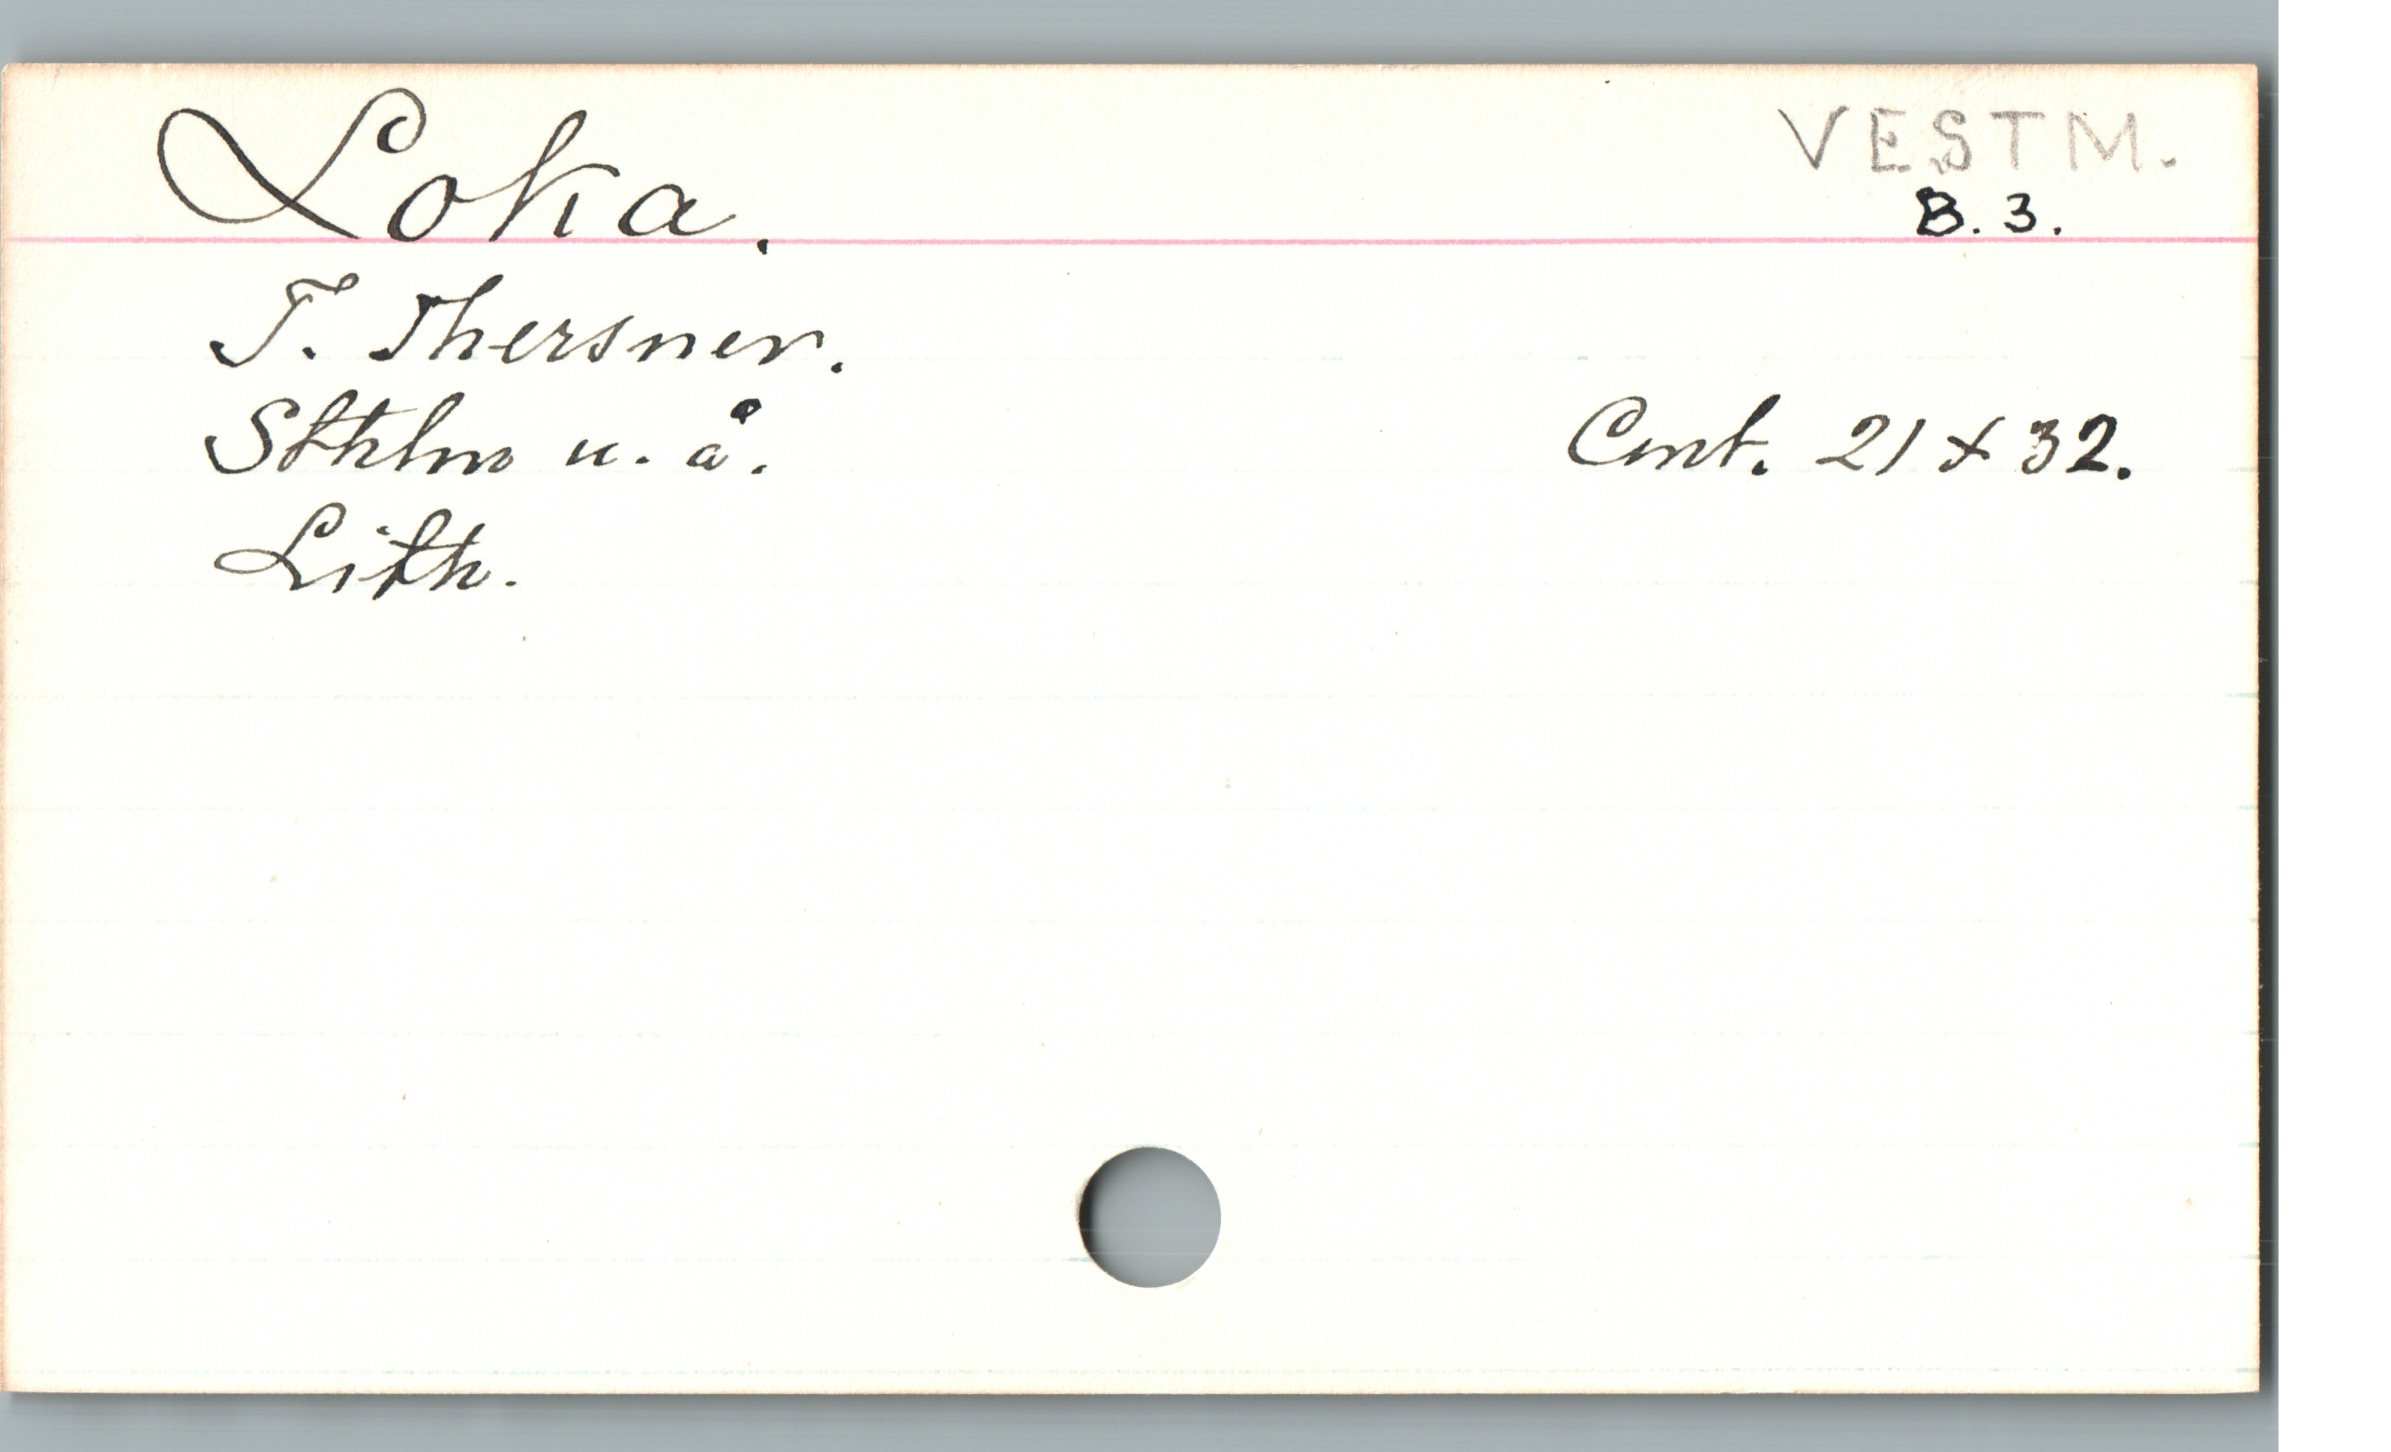 Loka.
VESTM.
B. 3.
T. Thersner.
Sthlm u. å.
Cmt. 21 x 32.
Lith.